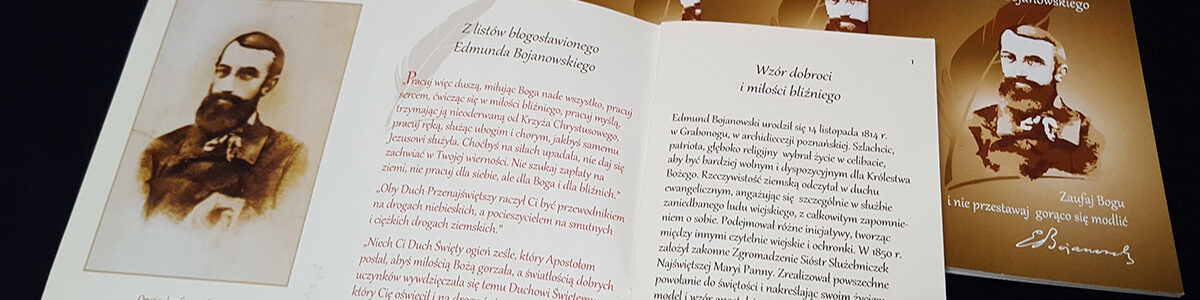 Z listów błogosławionego
Edmunda Bojanowskiego
„Pracuj więc duszą, miłując Boga nade wszystko, pracuj
sercem, ćwicząc się w miłości bliźniego, pracuj myślą,
trzymając ją nieoderwaną od Krzyża Chrystusowego,
pracuj ręką, służąc ubogim i chorym, jakbyś samemu
Jezusowi służyła. Choćbyś na siłach upadała, nie daj się
zachwiać w Twojej wierności. Nie szukaj zapłaty na
ziemi, nie pracuj dla siebie, ale dla Boga i dla bliźnich.”
„Oby Duch Przenajświętszy raczył Ci być przewodnikiem
na drogach niebieskich, a pocieszycielem na smutnych
i ciężkich drogach ziemskich.”
„Niech Ci Duch Święty ogień ześle, który Apostołom
posłał, abyś miłością Bożą gorzała, a światłością dobrych
uczynków wywdzięczała się temu Duchowi Świętemu,
który Cię oświecił i na
1
Wzór dobroci
i miłości bliźniego
Edmund Bojanowski urodził się 14 listopada 1814 r.
w Grabonogu, w archidiecezji poznańskiej. Szlachcic,
patriota, głęboko religijny wybrał życie w celibacie,
aby być bardziej wolnym i dyspozycyjnym dla Królestwa
Bożego. Rzeczywistość ziemską odczytał w duchu
ewangelicznym, angażując się szczególnie w służbie
zaniedbanego ludu wiejskiego, z całkowitym zapomnie-
niem o sobie. Podejmował różne inicjatywy, tworząc
między innymi czytelnie wiejskie i ochronki. W 1850 r.
założył zakonne Zgromadzenie Sióstr Służebniczek
Najświętszej Maryi Panny. Zrealizował powszechne
powołanie do świętości i nakreślając swoim życiem
model i wzór
Bojanowskiego
Zaufaj Bogu
i nie przestawaj gorąco się modlić
EBojanowski